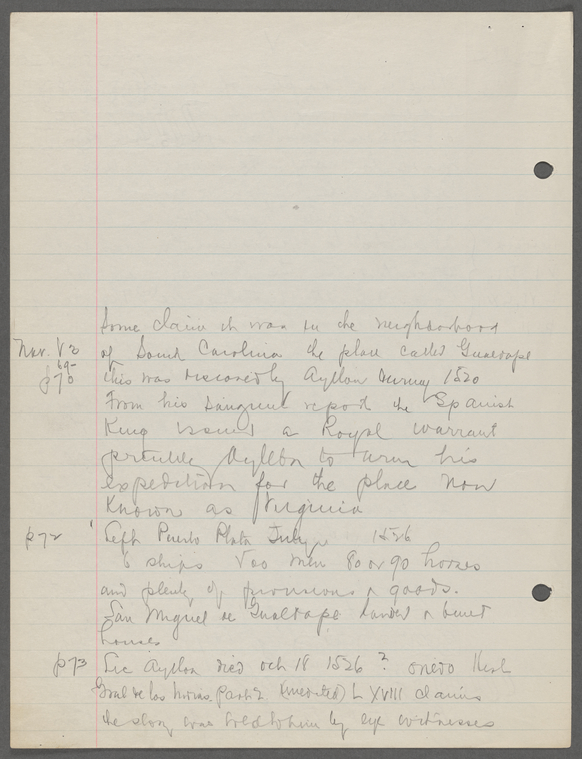 Some claim it was in the neighborhood
Nav. V2 of South Carolina the place called Gualdape
69-
p70 this was discovered by Ayllon during 1520
From his sanguine report the Spanish
King issued a Royal warrant
Ayllon to arm his
expedition for the place now
known as Virginia
p72 Left Puerto Plata July 1526
6 ships 500 men 80 or 90 horses
and plenty of provisions & goods.
San Miguel de Gualdape landed & built
houses
p73 Lic Ayllon died Oct 18 1526? Oviedo Hist
Genl de las Indias. Part 2 (inedited) L XVIII claims
the story was told to him by eye witnesses